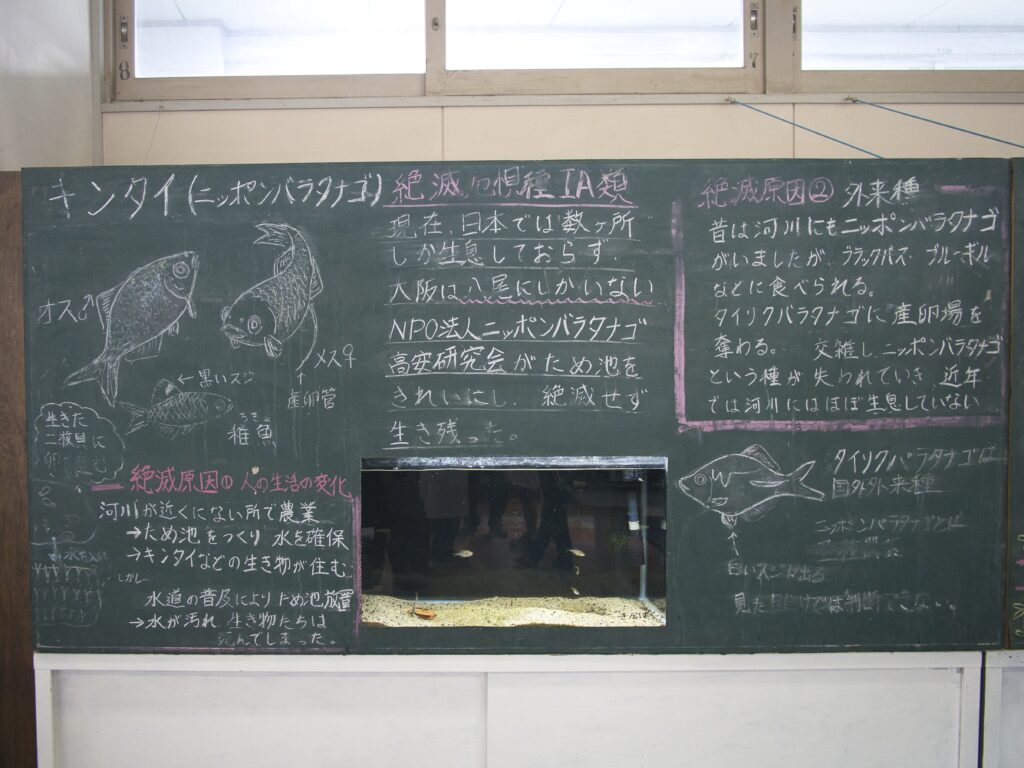 キンタイ(ニッポンバラタナゴ)
オス♂
メス♀
産卵管
←黒いスジ
ちぎょ
稚魚
生きた
二枚貝に
卵
絶滅原因① 人の生活の変化
河川が近くにない所で農業
→ため池をつくり 水を確保
→キンタイなどの生き物が住む
しかし…
水道の普及により ため池放置
→水が汚れ 生き物たちは
死んでしまった。
絶滅危惧種IA類
現在、日本では数ヶ所
しか生息しておらず、
大阪は八尾にしかいない
NPO法人ニッポンバラタナゴ
高安研究会がため池を
きれいにし、絶滅せず
生き残った。
絶滅原因② 外来種
昔は河川にもニッポンバラタナゴ
がいましたが、ブラックバス、ブルーギル
などに食べられる。
タイリクバラタナゴに産卵場を
奪わる。 交雑し、ニッポンバラタナゴ
という種が失われていき、近年
では河川にはほぼ生息していない
タイリクバラタナゴは
国外外来種
ニッポンバラタナゴとは
白いスジが出る
見た目だけでは判断できない。
8